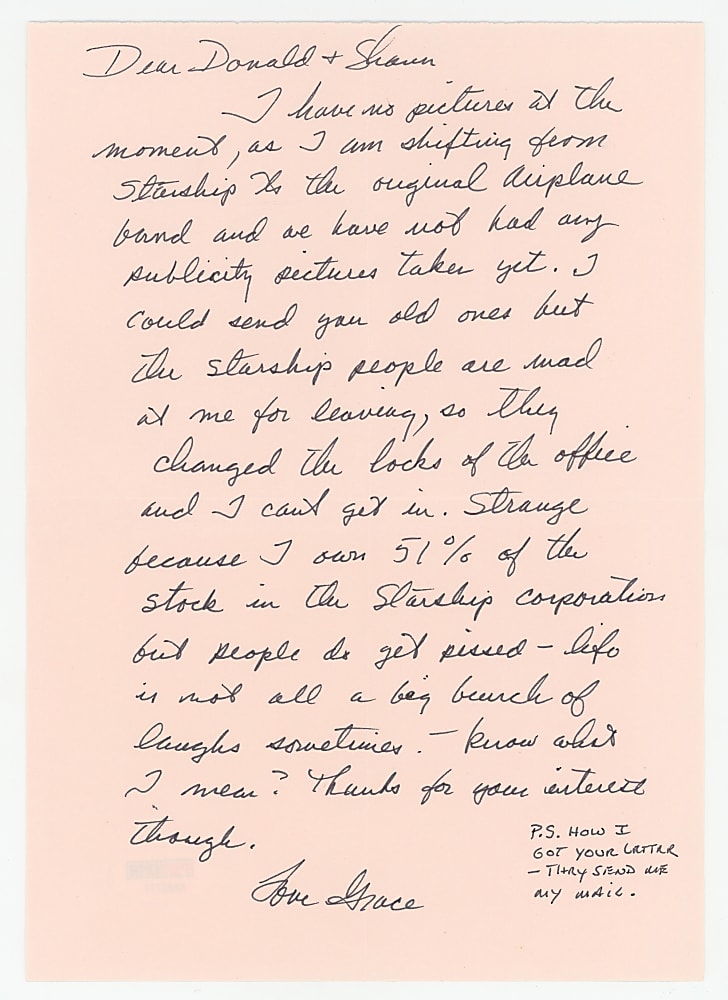 Dear Donald + Shawn
I have no pictures at the
moment, as I am shifting from
Starship to the original Airplane
band and we have not had any
publicity pictures taken yet. I
could send you old ones but
the starship people are mad
at me for leaving, so they
changed the locks of the office
and I cant get in. Strange
because I own 51% of the
stock in the Starship corporation
but people do get pissed – life
is not all a big bunch of
laughs sometimes. – know what
I mean? Thanks for your interest
though.
Love Grace
P.S. HOW I
GOT YOUR LETTER
– THEY SEND ME
MY MAIL.